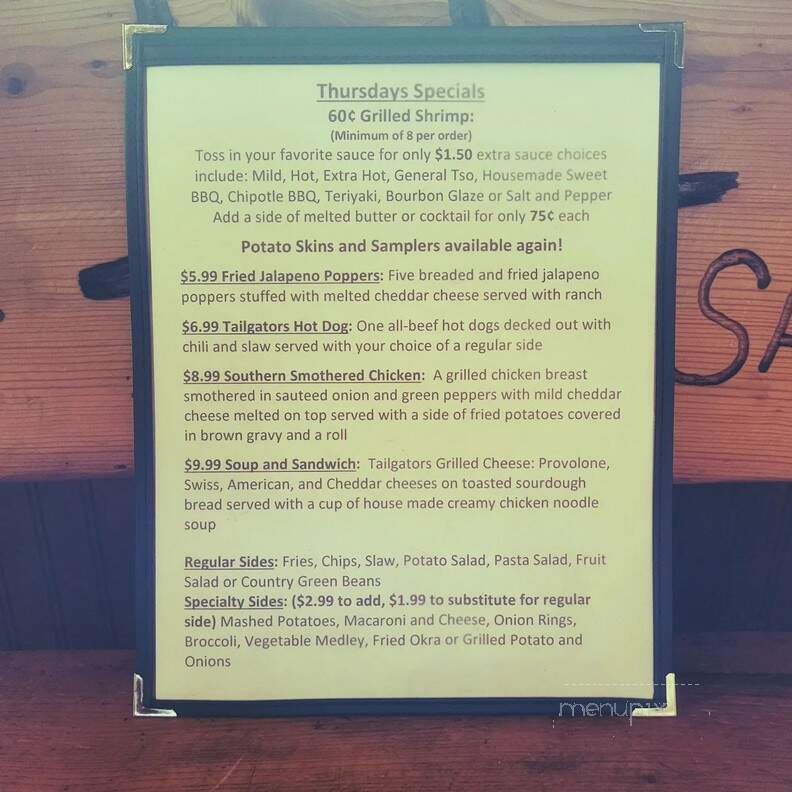 Thursdays Specials
60¢ Grilled Shrimp:
(Minimum of 8 per order)
Toss in your favorite sauce for only $1.50 extra sauce choices
include: Mild, Hot, Extra Hot, General Tso, Housemade Sweet
BBQ, Chipotle BBQ, Teriyaki, Bourbon Glaze or Salt and Pepper
Add a side of melted butter or cocktail for only 75¢ each
Potato Skins and Samplers available again!
$5.99 Fried Jalapeno Poppers: Five breaded and fried jalapeno
poppers stuffed with melted cheddar cheese served with ranch
$6.99 Tailgators Hot Dog: One all-beef hot dogs decked out with
chili and slaw served with your choice of a regular side
$8.99 Southern Smothered Chicken: A grilled chicken breast
smothered in sauteed onion and green peppers with mild cheddar
cheese melted on top served with a side of fried potatoes covered
in brown gravy and a roll
$9.99 Soup and Sandwich: Tailgators Grilled Cheese: Provolone,
Swiss, American, and Cheddar cheeses on toasted sourdough
bread served with a cup of house made creamy chicken noodle
soup
Regular Sides: Fries, Chips, Slaw, Potato Salad, Pasta Salad, Fruit
Salad or Country Green Beans
Specialty Sides: ($2.99 to add, $1.99 to substitute for regular
side) Mashed Potatoes, Macaroni and Cheese, Onion Rings,
Broccoli, Vegetable Medley, Fried Okra or Grilled Potato and
Onions
SA
menupix